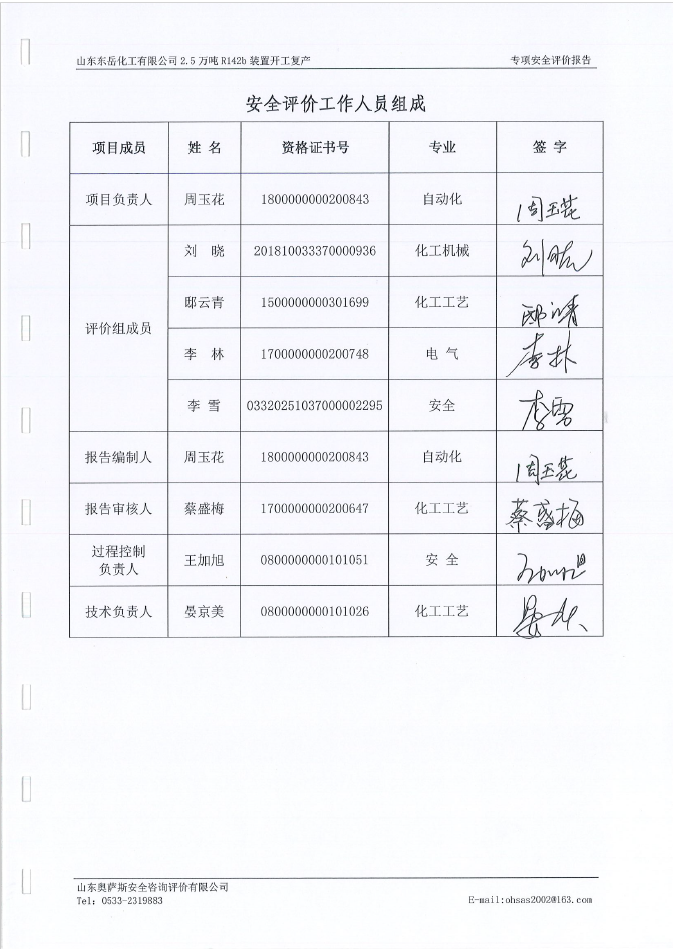 山东东岳化工有限公司2.5万吨R142b装置开工复产 专项安全评价报告
安全评价工作人员组成
项目成员 姓 名 资格证书号 专业 签 字
项目负责人 周玉花 1800000000200843 自动化 周玉花
评价组成员
刘 晓 201810033370000936 化工机械 刘晓
邸云青 1500000000301699 化工工艺 邸云青
李 林 1700000000200748 电 气 李林
李 雪 03320251037000002295 安全 李雪
报告编制人 周玉花 1800000000200843 自动化 周玉花
报告审核人 蔡盛梅 1700000000200647 化工工艺 蔡盛梅
过程控制
负责人 王加旭 0800000000101051 安 全 王加旭
技术负责人 晏京美 0800000000101026 化工工艺
山东奥萨斯安全咨询评价有限公司
Tel: 0533-2319883 E-mail:ohsas2002@163.com